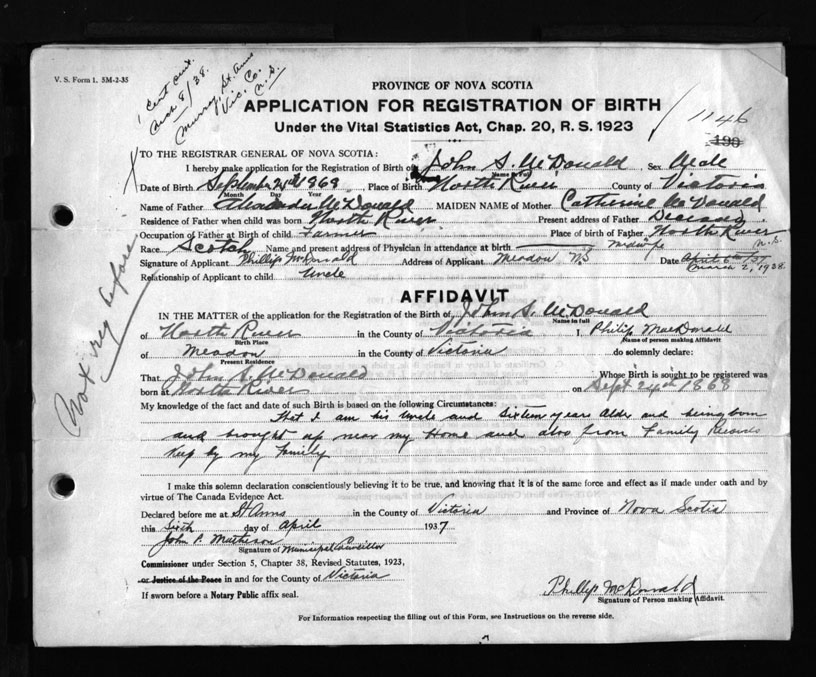 V. S. Form 1. 5M-2-35
1 Cert sent
8/38.
Murray, St. Anns
Vic. Co.
N.S.
PROVINCE OF NOVA SCOTIA
APPLICATION FOR REGISTRATION OF BIRTH
Under the Vital Statistics Act, Chap. 20, R. S. 1923
1146
190
TO THE REGISTRAR GENERAL OF NOVA SCOTIA:
I hereby make application for the Registration of Birth of John S. McDonald Sex Male
Name in full
Date of Birth September 24th 1869 Place of Birth North River County of Victoria
Month Day Year
Name of Father Alexander McDonald MAIDEN NAME of Mother Catherine McDonald
Residence of Father when child was born North River Present address of Father
Occupation of Father at Birth of child Farmer Place of birth of Father North River
N.S.
Race Scotch Name and present address of Physician in attendance at birth. midwife
Signature of Applicant Phillip McDonald Address of Applicant Meadow NS Date April 6th/37
March 2, 1938
Relationship of Applicant to child Uncle
Not reg before
AFFIDAVIT
IN THE MATTER of the application for the Registration of the Birth of, John S. McDonald
Name in full
of North River in the County of Victoria I, Philip MacDonald
Birth Place Name of person making Affidavit
of Meadow in the County of Victoria do solemnly declare:
Present Residence
That John S. McDonald Whose Birth is sought to be registered was
born at North River on Sept 24th 1868
My knowledge of the fact and date of such Birth is based on the following Circumstances:
That I am his Uncle and Sixteen year Older and being born
and brought up near my Home and also from Family Records
Keep by my Family
I make this solemn declaration conscientiously believing it to be true, and knowing that it is of the same force and effect as if made under oath and by
virtue of The Canada Evidence Act.
Declared before me at St Anns in the County of Victoria and Province of Nova Scotia
this Sixth day of April 1937
John P. Matheson
Signature of Municipal Councillor
Commissioner under Section 5, Chapter 38, Revised Statutes, 1923,
or Justice of the Peace in and for the County of Victoria
If sworn before a Notary Public affix seal.
Phillip McDonald
Signature of Person making Affidavit.
For Information respecting the filling out of this Form, see Instructions on the reverse side.